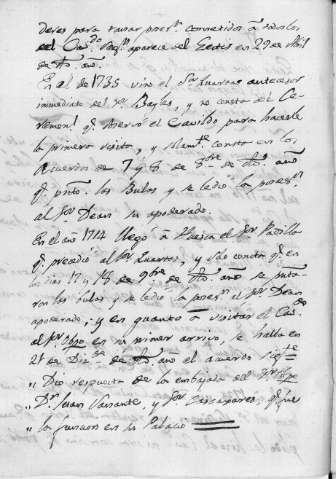 deres para tomar poses.n cometidos a todos los
del Cav.do segn. aparece del Gestis en 29 de Abril
de dho año.
En el de 1735 vino el Sor. Cuartas antecesor
inmediato del Sr. Bayles, y no consta del Ce-
remon.l q.e observó el Cavildo para hacerle
la primera visita, y solam.te consta en los
Acuerdos de 7 y 8 de 9bre de dho año
q.e pnto. las Bulas y se le dio la poses.n
al Sor. Dean su apoderado.
En el año 1714 llegó a Huesca el Sor. Padilla
q.e precedió al Sor. Cuartas, y solo consta q.e en
los dias 17 y 18 de 9bre de dho año se
ron las bulas y se le dio la poses.n al Sor Dean
apoderado; y en quanto a visitar el Cav.do
al Sor Obpo en su primer arrivo, se halla en
21 de Dic.re de dho año el acuerdo sig.te
„ Dio respuesta de la embajada del Sr Obpo
„ Dn. Juan y Sor. q.e fue
„ la funcion en los Palacio